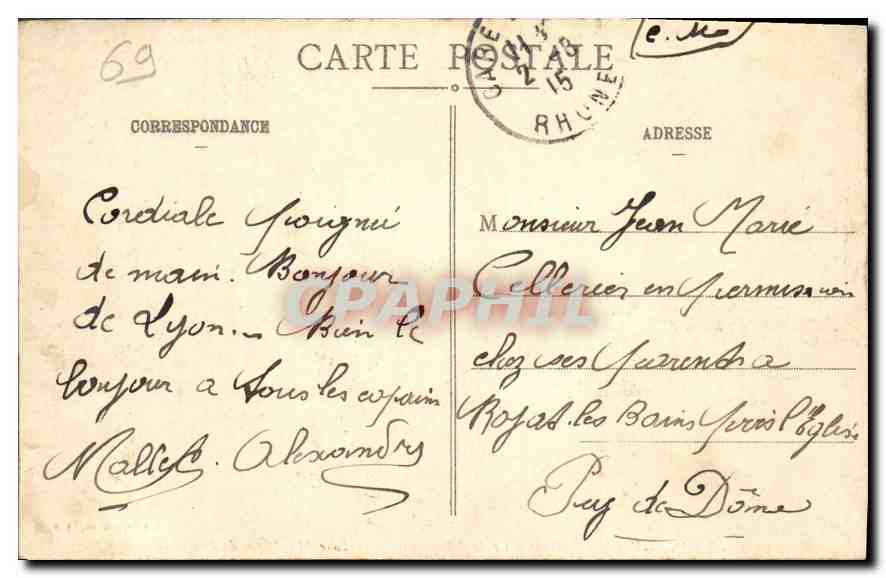 69
CARTE POSTALE
GARE
2 - 8
15
RHONE
e. M
CORRESPONDANCE
Cordiale poignié
de main. Bonjour
de Lyon. Bien le
bonjour a tous les copains
Mallet. Alexandry
ADRESSE
Monsieur Jean Marie
Cellerier en permission
chez ses parents a
Royat-les Bains près l'Eglise
Puy de Dôme
CPAPHIL